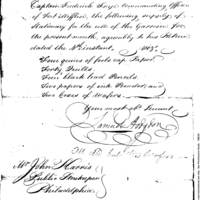 Captain Frederick Frye Commanding Officer
of Fort Mifflin, the following supply of
Stationary for the use of the Garrison for
the present month, agreeably to his Return
dated the 1st instant.
Four quires of fools cap Paper
Forty Quills
Four black lead Pencils
Two papers of ink Powder and
Two Boxes of Wafers.
Your most ob. Servant
Samuel Hodgdon
Mr John Harris
Public Storekeeper
Philadelphia